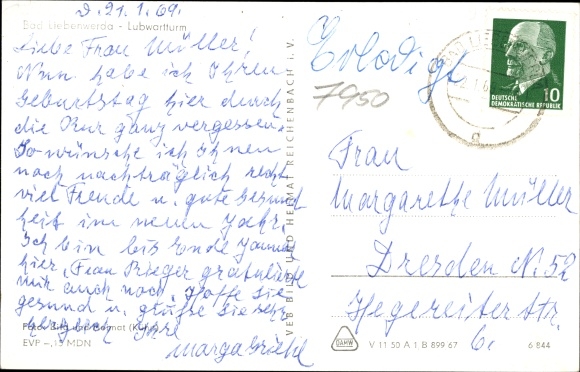 d. 21.1.69.
Bad Liebenwerda - Lubwartturm
Liebe Frau Müller!
Nun habe ich Ihren
Geburtstag hier durch
die Kur ganz vergessen.
So wünsche ich Ihnen
noch nachträglich recht
viel Freude u. gute Gesund
heit im neuen Jahr.
Ich bin bis Ende Januar
hier, Frau Rieger gratulierte
mir auch noch. Hoffe Sie
gesund u. grüße Sie sehr
herzlich Ihre
Marga
EVP -,15 MDN
VEB BILD UND HEIMAT REICHENBACH i. V.
Erledigt
7950
BAD LIEBENWERDA
DEUTSCHE
DEMOKRATISCHE REPUBLIK
10
Frau
Margarethe Müller
Dresden N. 52
Hegereiter Str.
6.
DAHW
V 11 50 A 1 B 899 67
6 844